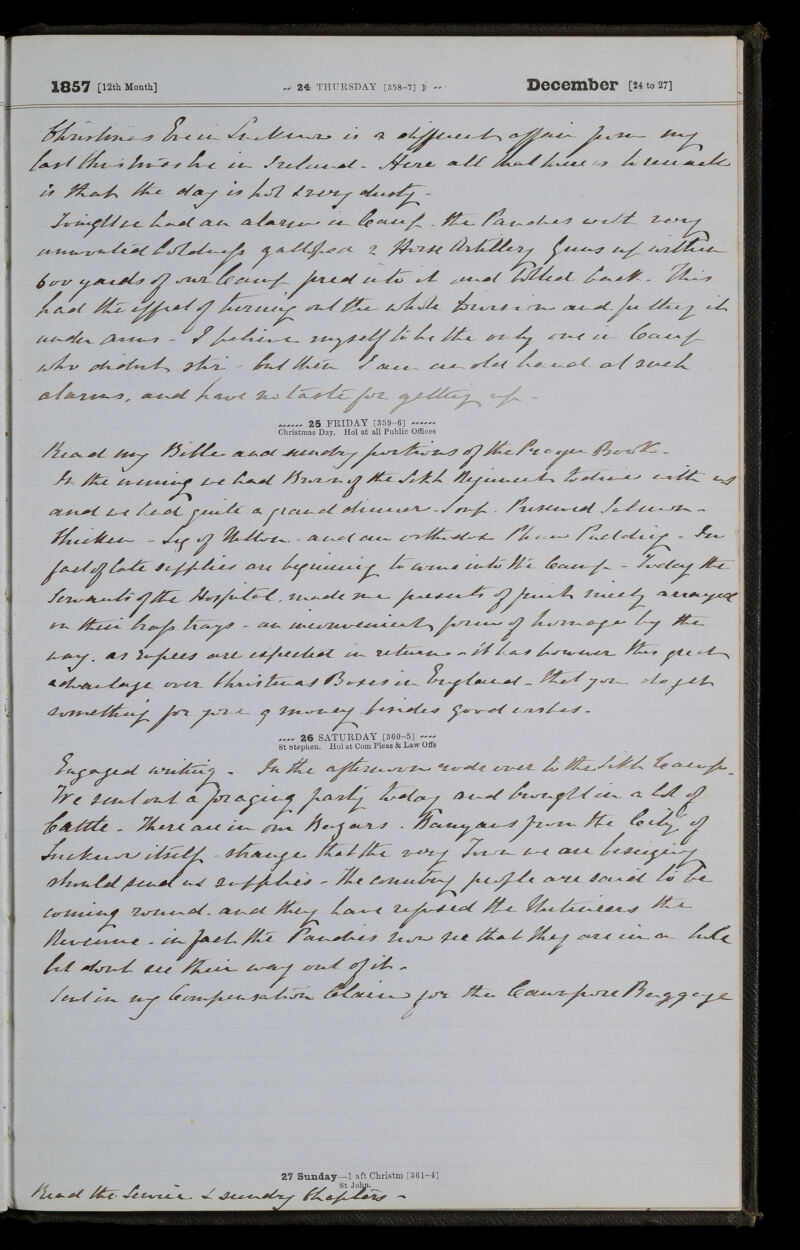 1857 [12th Month] 24 THURSDAY [358-7] December [24 to 27]
Christmas Eve in Lucknow is a different affair from my
last Christmas Eve in Ireland - Here all that there is to remark
is that the day is hot & very dusty -
Tonight we had an alarm in Camp - the Pandies with very
unwonted boldness galloped 2 Horse Artillery Guns up within
600 yards of our Camp fired into it and bolted back. This
had the effect of turning out the whole Division and putting it
under arms - I believe myself to be the only one in Camp
who didnt stir - but then I am an old hand at such
alarms, and have no taste for getting up -
25 FRIDAY [359-6]
Christmas Day. Hol at all Public Offices
Read my Bible and sundry portions of the Prayer Book -
In the evening we had of the Sikh Regiment to dine with us
and we had quite a grand dinner - Soup - Preserved Salmon -
Chicken - Leg of Mutton - and an orthodox Plum Pudding - In
fact of late supplies are beginning to come into the Camp - Today the
Servants of the Hospital, made me presents of fruit nicely arranged
on their brass trays - an inconvenient form of homage by the
way, as rupees are expected in return - it has however this great
advantage over Christmas Boxes in England - that you do get
something for your money besides good wishes -
26 SATURDAY [360-5]
St Stephen. Hol at Com Pleas & Law Offs
Engaged writing - In the afternoon rode over to the Sikh Camp -
We sent out a foraging party today and brought in a lot of
Cattle - There are in our Bazars - Banyans from the City of
Lucknow itself - strange that the very Town we are besieging
should send us supplies - The country people are said to be
coming round - and they have refused the Mutineers the
Revenue - in fact the Pandies now see that they are in a hole
but dont see their way out of it -
Sent in my Compensation Claim for the Cawnpore Baggage
27 Sunday—1 aft Christm [361-4]
St John.
Read the Service & sundry Chapters -